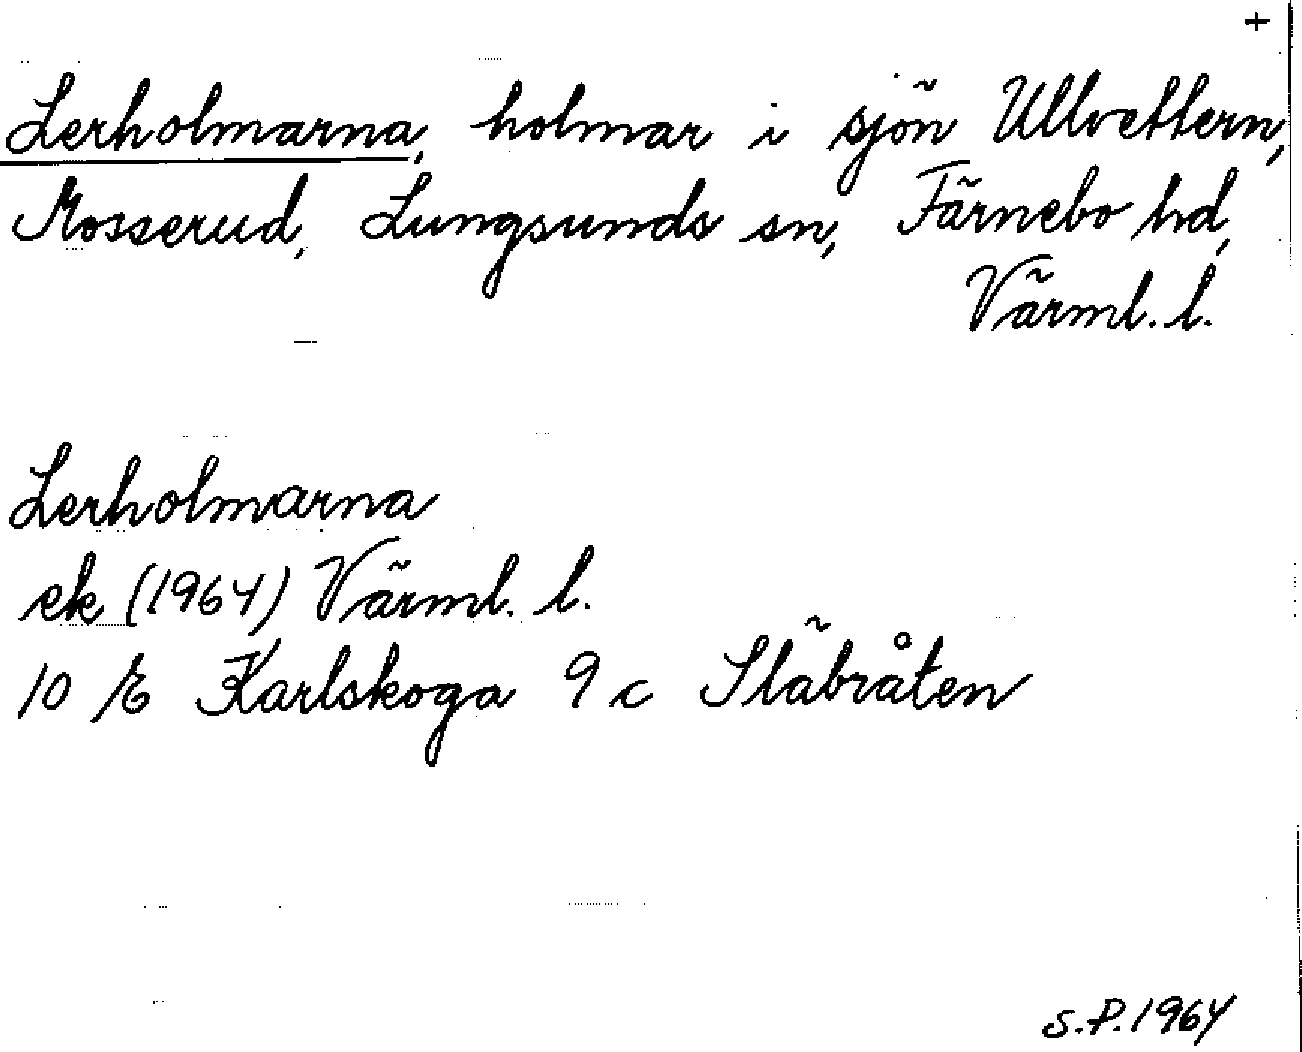 +
Lerholmarna, holmar i sjön Ullvettern,
Mosserud, Lungsunds sn, Färnebo hd,
Värml. l.
Lerholmarna
ek (1964) Värml. l.
10 E Karlskoga 9 c Släbråten
S.P. 1964